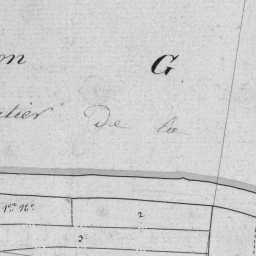 on G
tier De la
1er No 2
3